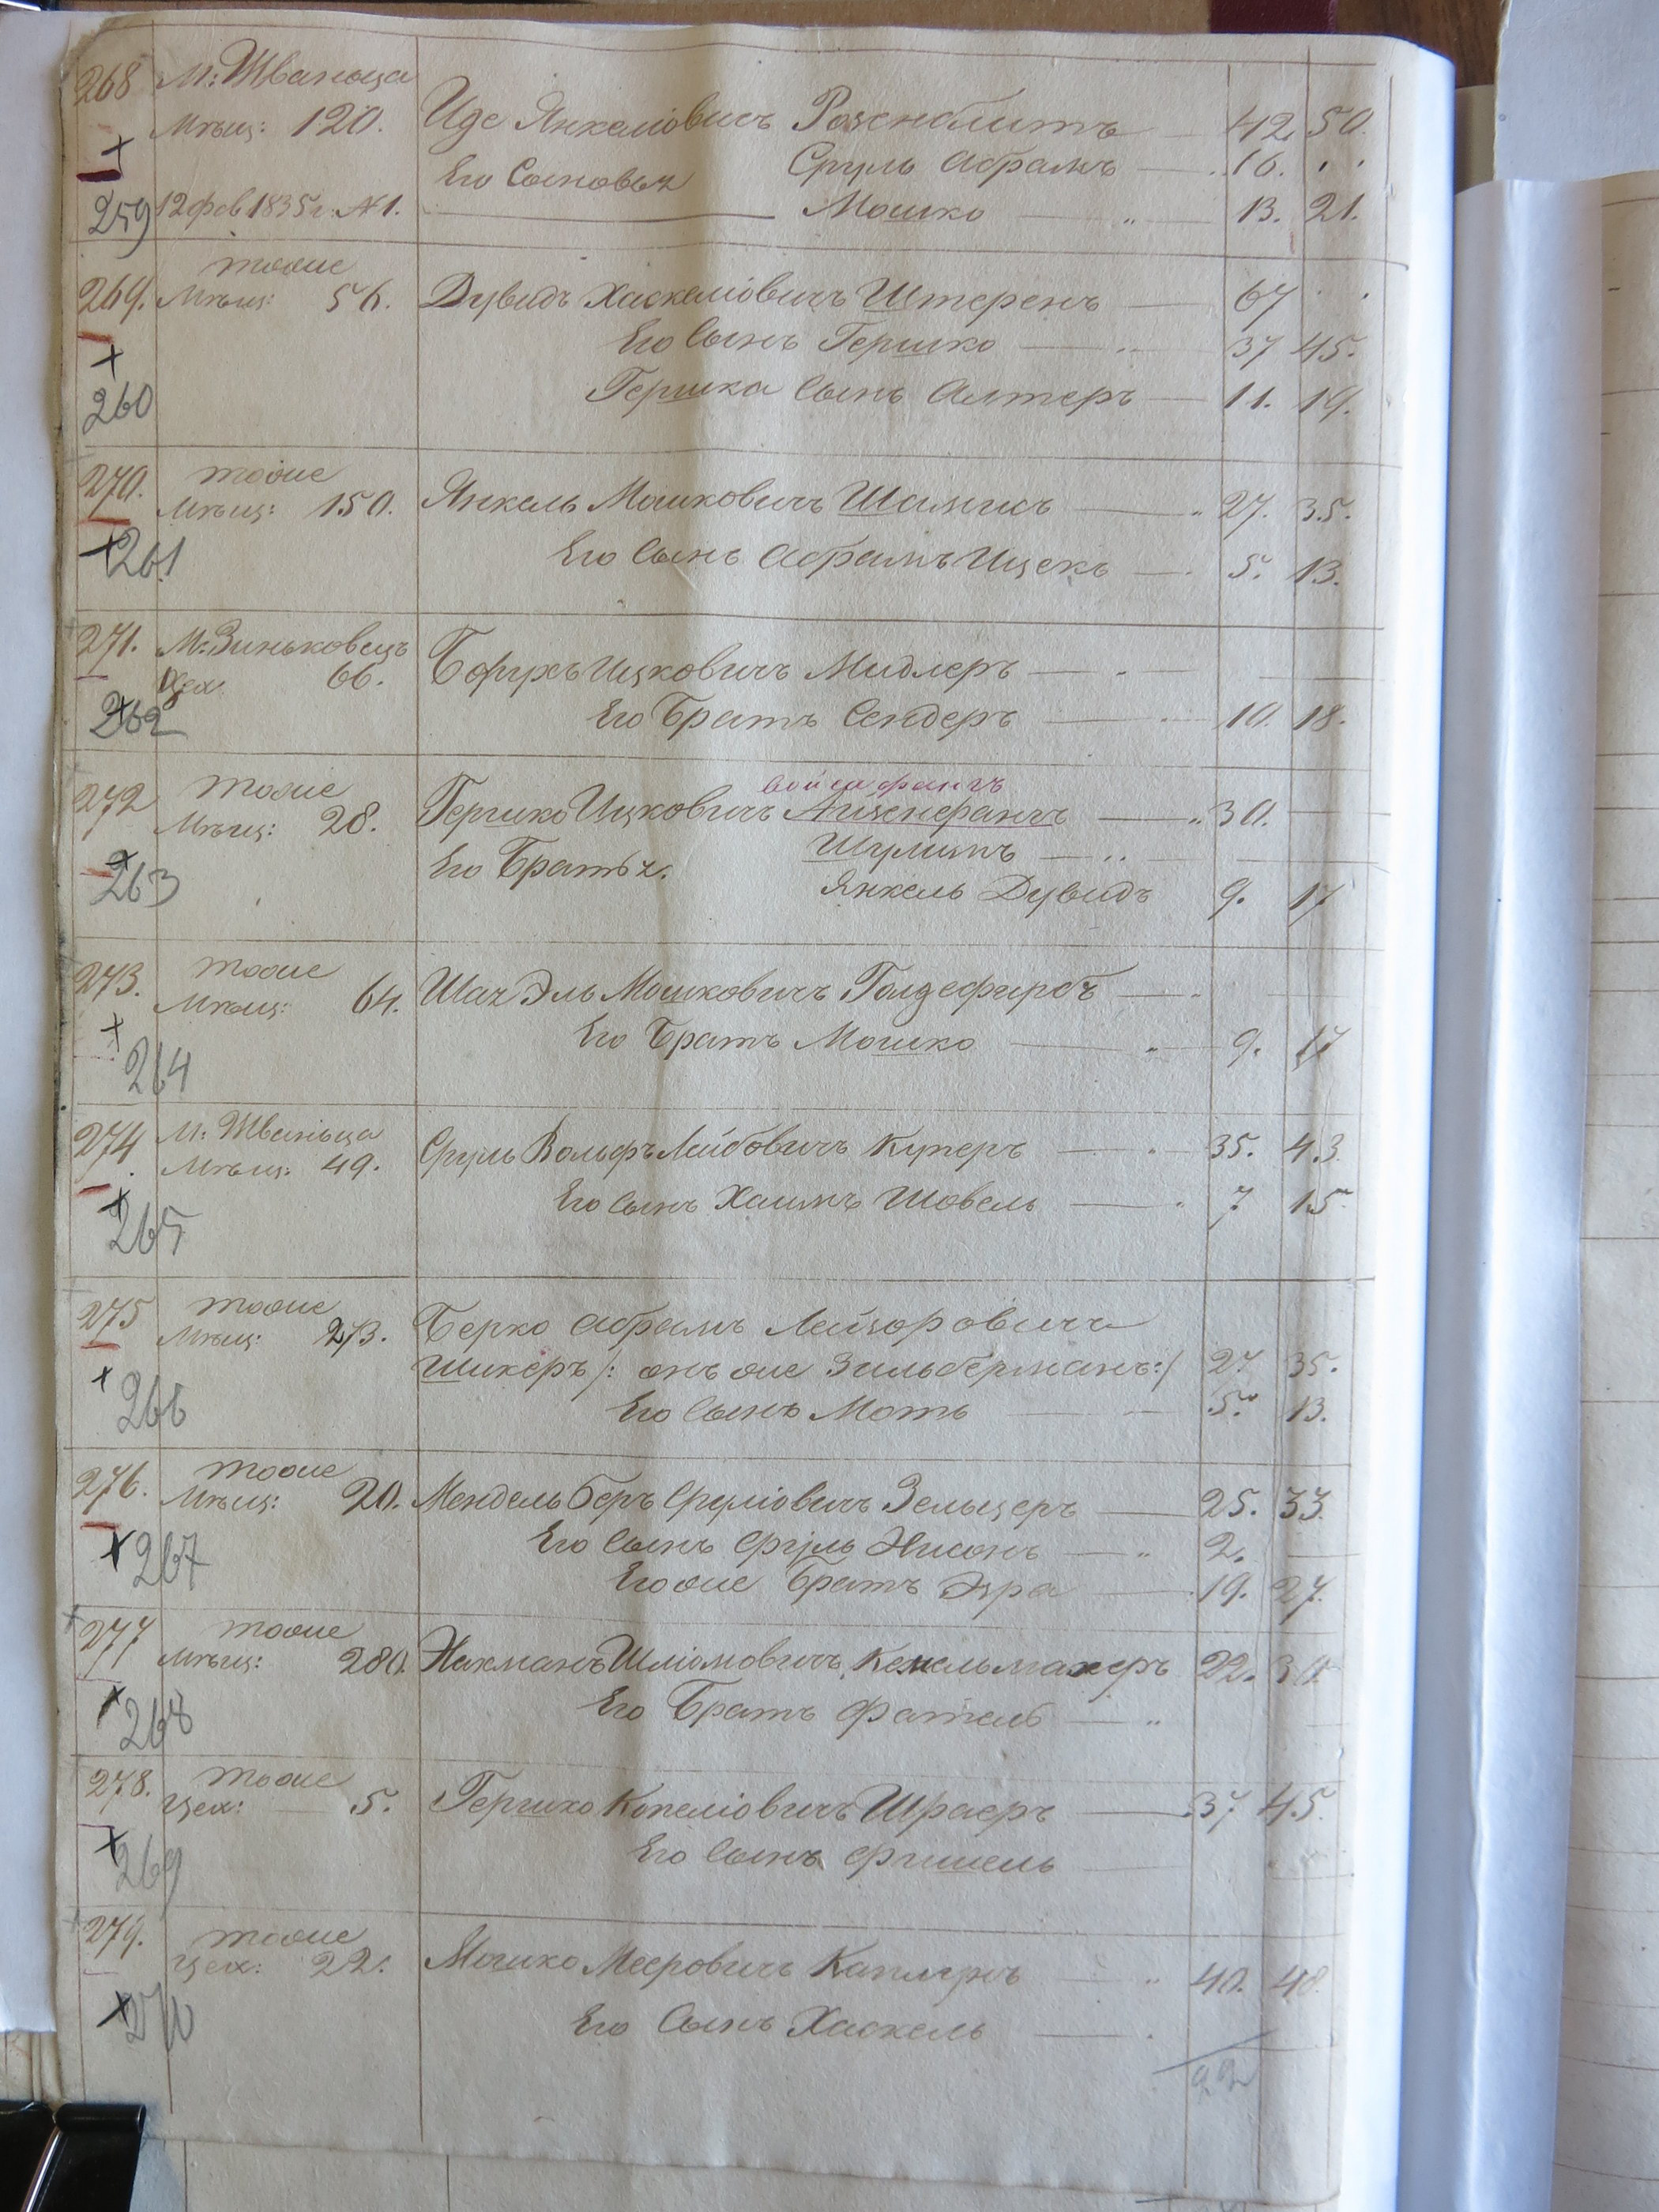 268 М: Жванца
Мѣщ: 120. Иде Янкеліовичъ Розенблитъ 42. 50.
Его Сыновья Сруль Абрамъ 16.
259 12 фев 1835 г. № 1. Мошко 13. 21.
тоже
269. Мѣщ: 56. Дувидъ Хаскеліовичъ Штеренъ 67
Его Сынъ Гершко 37 45.
260 Гершка Сынъ Алтеръ 11. 19.
270. тоже
Мѣщ: 150. Янкель Мошковичъ Шамисъ 27. 35.
261 Его Сынъ Абрамъ Ицекъ 5. 13.
271. М: Зиньковецъ
Цех. 66. Борухъ Ицковичъ Мидлеръ
262 Его Братъ Сендеръ 10. 18.
272 тоже
Мѣщ: 28. Гершко Ицковичъ 30.
263 Его Братья. Шулимъ
Янкель Дувидъ 9. 17
273. тоже
Мѣщ: 64. Шая Эль Мошковичъ Голдефарбъ
Его Братъ Мошко 9. 17
264
274 М: Жванца
Мѣщ: 49. Сруль Вольфъ Лейбовичъ Куперъ 35. 43
265 Его Сынъ Хаимъ Шовель 7 15
275 тоже
Мѣщ: 273. Берко Абрамъ Лейзоровичъ
Шикеръ /: онъ же Зильберманъ:/ 27 35.
266 Его Сынъ Моть 5. 13.
276. тоже
Мѣщ: 20. Мендель Беръ Сруліовичъ Зельцеръ 25. 33.
267 Его Сынъ Сруль Нисонъ 2.
Его же Братъ Эзра 19. 27.
277 тоже
Мѣщ: 280. Нахманъ Шліомовичъ 22. 30
268 Его Братъ
278. тоже
Цех: 5. Гершко Копеліовичъ Шраеръ 37 45.
269 Его Сынъ Фишель
279. тоже
Цех: 22. Мошко Мееровичъ Каплунъ 40. 48.
270 Его Сынъ Хаскель
22